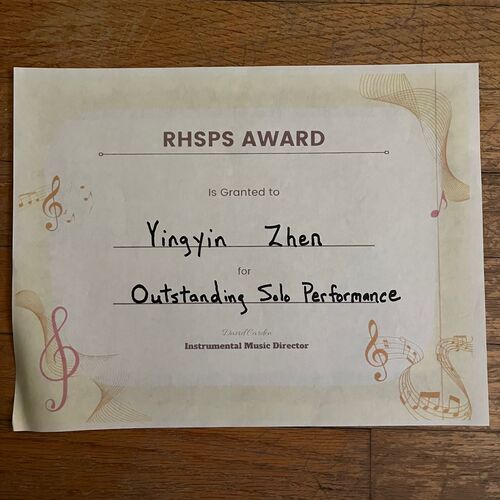 RHSPS AWARD
Is Granted to
Yingyin Zhen
for
Outstanding Solo Performance
David Carden
Instrumental Music Director